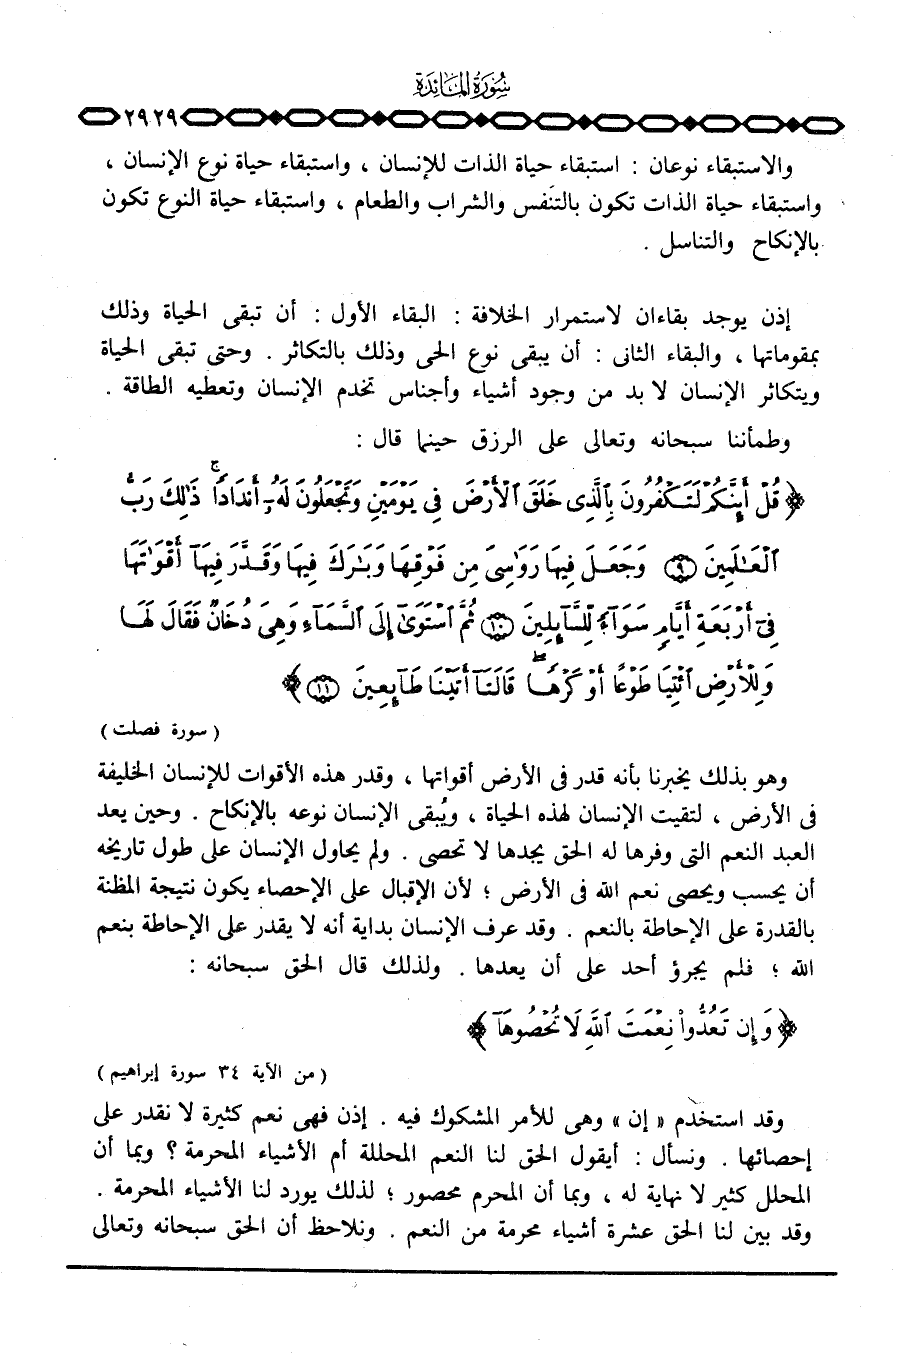 سُورَةُ المَائِدَةِ
٢٩٢٩
والاستبقاء نوعان : استبقاء حياة الذات للإنسان ، واستبقاء حياة نوع الإنسان ،
واستبقاء حياة الذات تكون بالتنفس والشراب والطعام ، واستبقاء حياة النوع تكون
بالإنكاح والتناسل .
إذن يوجد بقاءان لاستمرار الخلافة : البقاء الأول : أن تبقى الحياة وذلك
بمقوماتها ، والبقاء الثانى : أن يبقى نوع الحى وذلك بالتكاثر . وحتى تبقى الحياة
ويتكاثر الإنسان لا بد من وجود أشياء وأجناس تخدم الإنسان وتعطيه الطاقة .
وطمأننا سبحانه وتعالى على الرزق حينما قال :
﴿ قُلْ أَئِنَّكُمْ لَتَكْفُرُونَ بِالَّذِى خَلَقَ ٱلْأَرْضَ فِى يَوْمَيْنِ وَتَجْعَلُونَ لَهُۥٓ أَندَادًاۚ ذَٰلِكَ رَبُّ
ٱلْعَٰلَمِينَ ۝٩ وَجَعَلَ فِيهَا رَوَٰسِىَ مِن فَوْقِهَا وَبَٰرَكَ فِيهَا وَقَدَّرَ فِيهَآ أَقْوَٰتَهَا
فِىٓ أَرْبَعَةِ أَيَّامٍ سَوَآءً لِّلسَّآئِلِينَ ۝١٠ ثُمَّ ٱسْتَوَىٰٓ إِلَى ٱلسَّمَآءِ وَهِىَ دُخَانٌ فَقَالَ لَهَا
وَلِلْأَرْضِ ٱئْتِيَا طَوْعًا أَوْ كَرْهًاۖ قَالَتَآ أَتَيْنَا طَآئِعِينَ ۝١١ ﴾
( سورة فصلت )
وهو بذلك يخبرنا بأنه قدر فى الأرض أقواتها ، وقدر هذه الأقوات للإنسان الخليفة
فى الأرض ، لتقيت الإنسان لهذه الحياة ، ويُبقى الإنسان نوعه بالإنكاح . وحين يعد
العبد النعم التى وفرها له الحق يجدها لا تحصى . ولم يحاول الإنسان على طول تاريخه
أن يحسب ويحصى نعم الله فى الأرض ؛ لأن الإقبال على الإحصاء يكون نتيجة المظنة
بالقدرة على الإحاطة بالنعم . وقد عرف الإنسان بداية أنه لا يقدر على الإحاطة بنعم
الله ؛ فلم يجرؤ أحد على أن يعدها . ولذلك قال الحق سبحانه :
﴿ وَإِن تَعُدُّوا۟ نِعْمَتَ ٱللَّهِ لَا تُحْصُوهَآ ﴾
( من الآية ٣٤ سورة إبراهيم )
وقد استخدم « إن » وهى للأمر المشكوك فيه . إذن فهى نعم كثيرة لا نقدر على
إحصائها . ونسأل : أيقول الحق لنا النعم المحللة أم الأشياء المحرمة ؟ وبما أن
المحلل كثير لا نهاية له ، وبما أن المحرم محصور ؛ لذلك يورد لنا الأشياء المحرمة .
وقد بين لنا الحق عشرة أشياء محرمة من النعم . ونلاحظ أن الحق سبحانه وتعالى